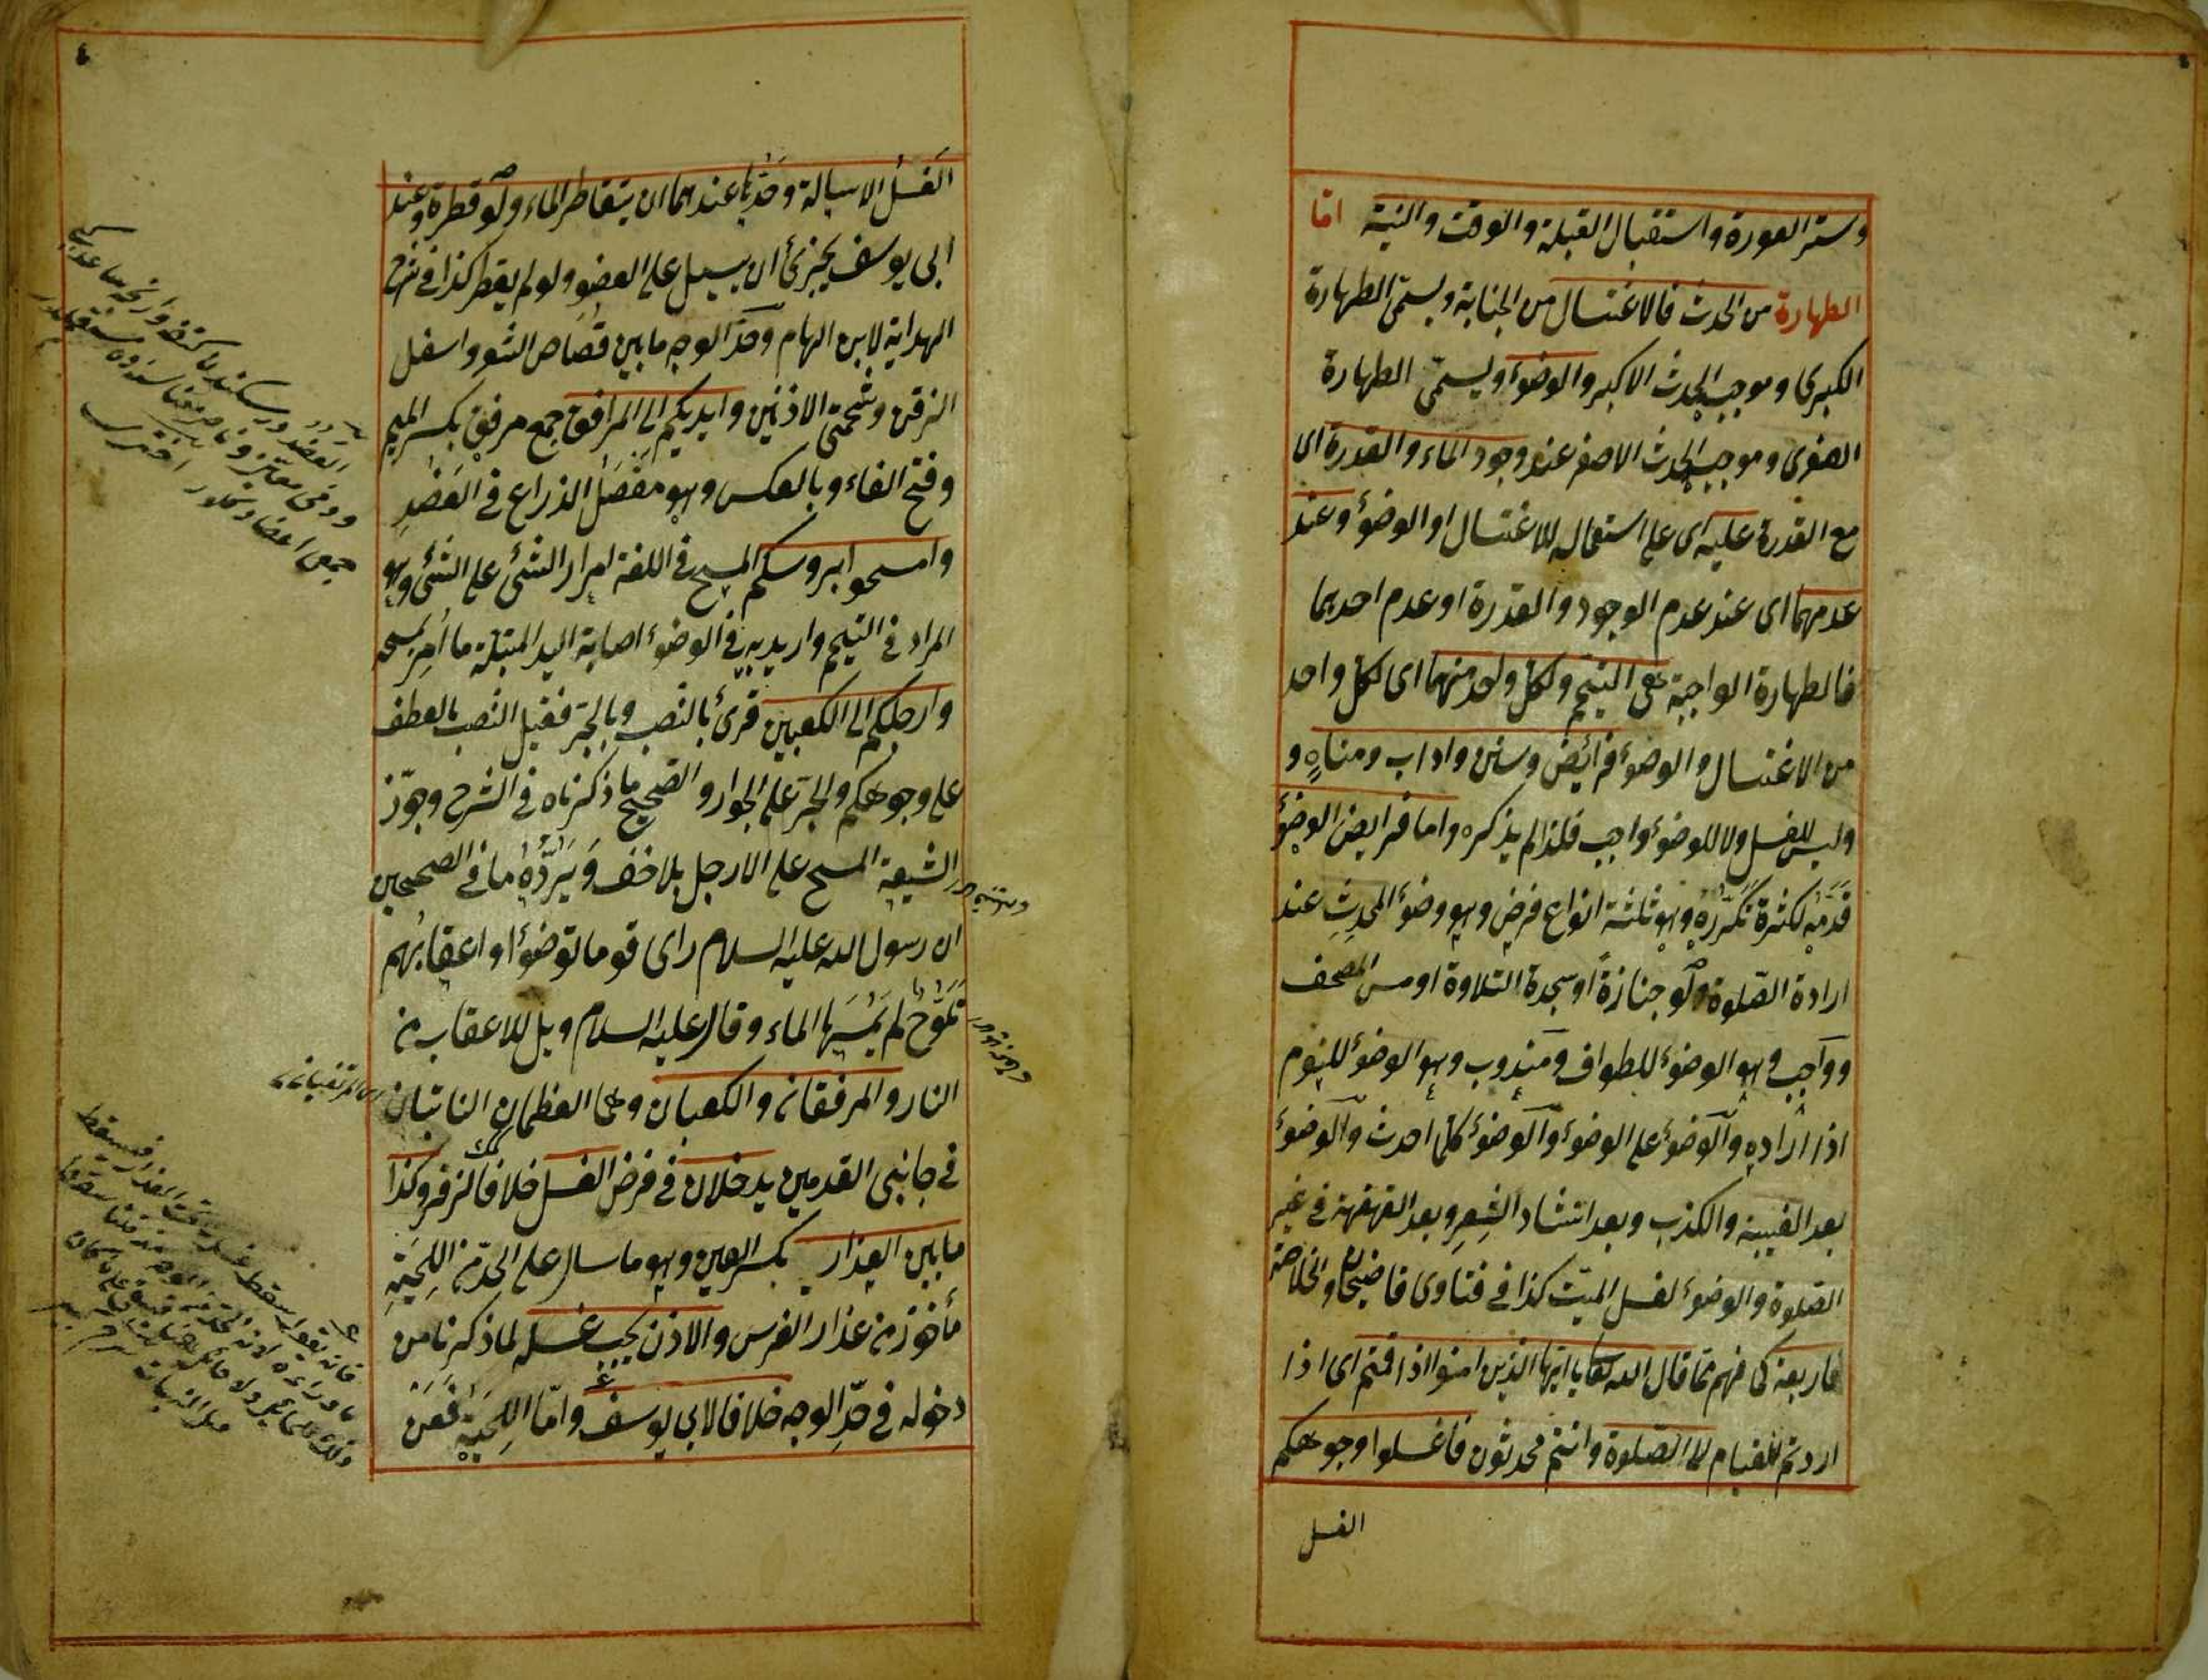 وستر العورة واستقبال القبلة والوقت والنية اما
الطهارة من الحدث فالاغتسال من الجنابة ويسمّى الطهارة
الكبرى وموجب الحدث الاكبر والوضوء ويسمّى الطهارة
الصغرى وموجب الحدث الاصغر عند وجود الماء والقدرة اى
مع القدرة عليه اى على استعماله للاغتسال او الوضوء وعند
عدمهما اى عند عدم الوجود والقدرة او عدم احدهما
فالطهارة الواجبة هى التيمم ولكل واحد منهما اى لكل واحد
من الاغتسال والوضوء فرائض وسنن واداب ومناهٍ و
وليس للغسل ولا للوضوء واجب فلذا لم يذكره واما فرايض الوضوء
قدّمه لكثرة تكرّره وهو ثلثة انواع فرض وهو وضوء المحدِث عند
ارادة الصّلوة ولو جنازةً او سجدة التلاوة او مس المصحف
وواجب وهو الوضوء للطواف ومندوب وهو الوضوء للنوم
اذا اراده والوضوء على الوضوء والوضوء كلّما احدث والوضوء
بعد الغيبة والكذب وبعد انشاد الشِعِر وبعد القهقهة فى غير
الصّلوة والوضوء لغسل الميّت كذا فى فتاوى قاضيخان والخلاصة
فاربعة كما فهم مما قال الله تعالى يا ايّها الذين امنوا اذا قمتم اى اذا
اردتم القيام الى الصّلوة وانتم محدثون فاغسلوا وجوهكم
الغسل
الغسل الاسالة وحدّها عندهما ان يتقاطر الماء ولو قطرة وعند
ابى يوسف يجزئ ان يسيل على العضو ولو لم يقطر كذا فى شرح
الهداية لابن الهمام وحدّ الوجه ما بين قصاص الشعر واسفل
الذقن وشحمتى الاذنين وايديكم الى المرافق جمع مرفق بكسر الميم
وفتح الفاء وبالعكس وهو مفصل الذراع فى العضد
وامسحوا برؤسكم المسح فى اللغة امرار الشئ على الشئ وهو
المراد فى التيمم واريد به فى الوضوء اصابة اليد المبتلة ما امر بمسحه
وارجلكم الى الكعبين قرئ بالنصب وبالجرّ فقيل النصب بالعطف
على وجوهكم والجرّ على الجوار والصّحيح ما ذكرناه فى الشرح وجوّز
الشيعة المسح على الارجل بلا خف وَيَردّه ما فى الصحيحين
ان رسول الله عليه السلام راى قوما توضؤا واعقابهم
تلوح لم يمسّها الماء وقال عليه السلام ويل للاعقاب من
النار والمرفقان والكعبان وهما العظمان الناتيان
فى جانبى القدمين يدخلان فى فرض الغسل خلافا لزفر وكذا
ما بين العِذار بكسر العين وهو ما سال على الخدّ من اللحية
مأخوذ من عذار الفرس والاذن يجب غسله لما ذكرنا من
دخوله فى حدّ الوجه خلافا لابى يوسف وامّا اللِحْيَة فعن